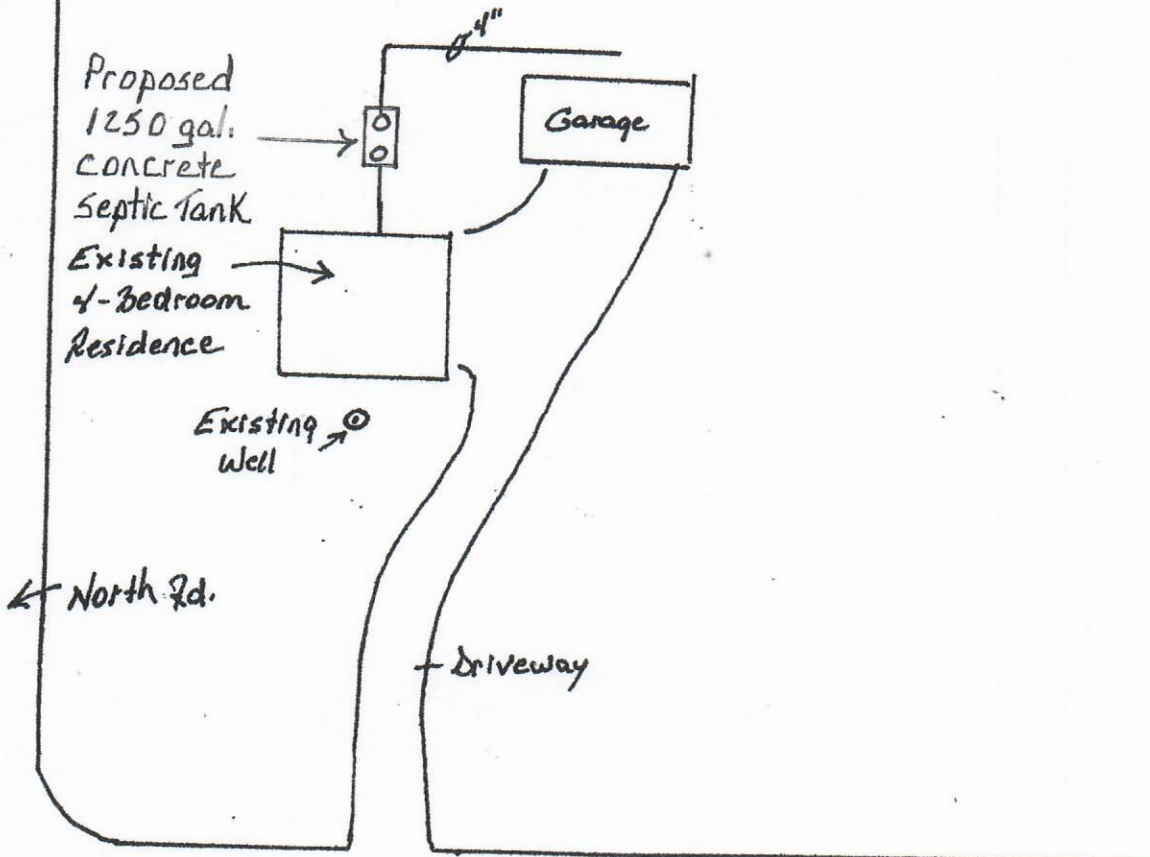 ø 4"
Proposed
1250 gal.
concrete
Septic Tank
Garage
Existing
4-Bedroom
Residence
Existing
Well
North Rd.
Driveway